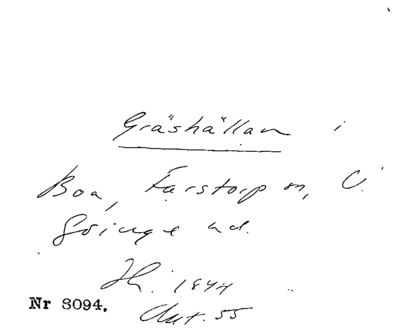 Gräshällan i
Boa, Farstorp sn, V.
Göinge hd.
Hi. 1844
Nr 8094.
Ant. 55